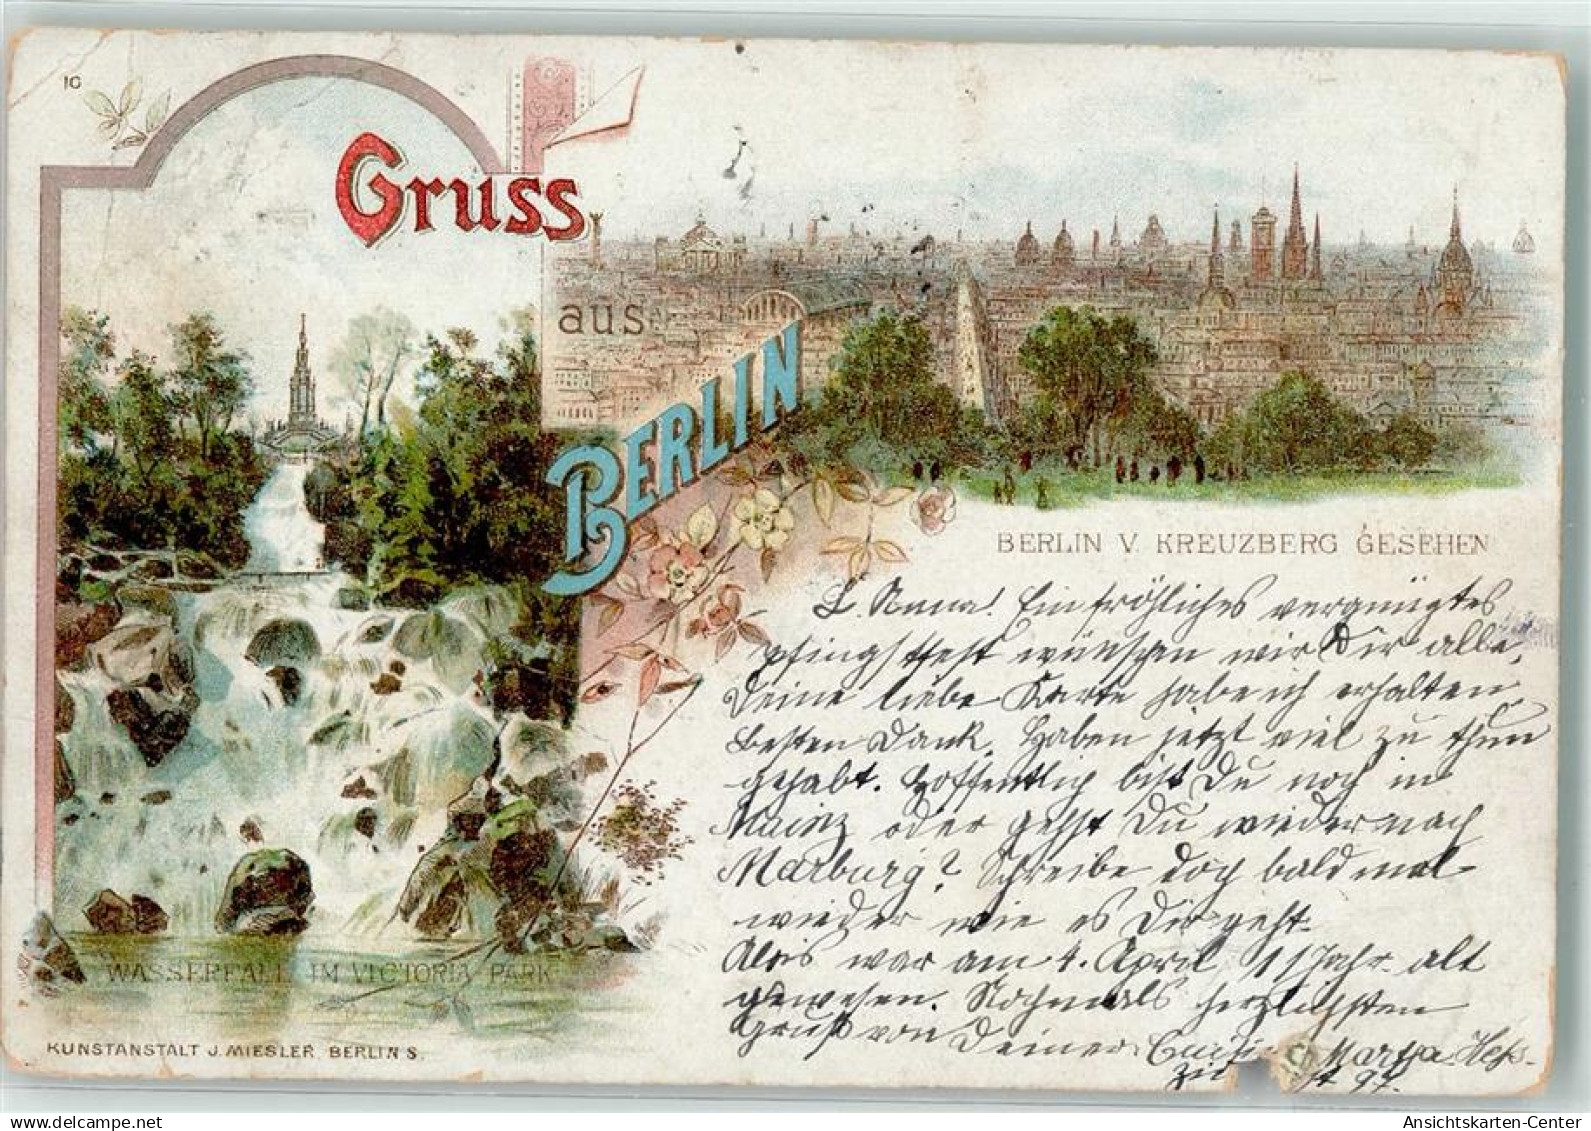 IG
Gruss
aus
BERLIN
BERLIN V. KREUZBERG GESEHEN
L. Anna! Ein fröhliches vergnügtes
Pfingstfest wünschen wir Dir alle,
Deine liebe Karte habe ich erhalten
besten Dank. Haben jetzt viel zu thun
gehabt. Hoffentlich bist Du noch in
Mainz oder gehst Du wieder nach
Marburg? Schreibe doch bald mal
wieder wie es Dir geht.
Alois war am 4. April 11 Jahr alt
gewesen. Nochmals herzlichsten
Gruß von Deiner Martha
WASSERFALL IM VICTORIA PARK
KUNSTANSTALT J. MIESLER BERLIN S.
Ansichtskarten-Center